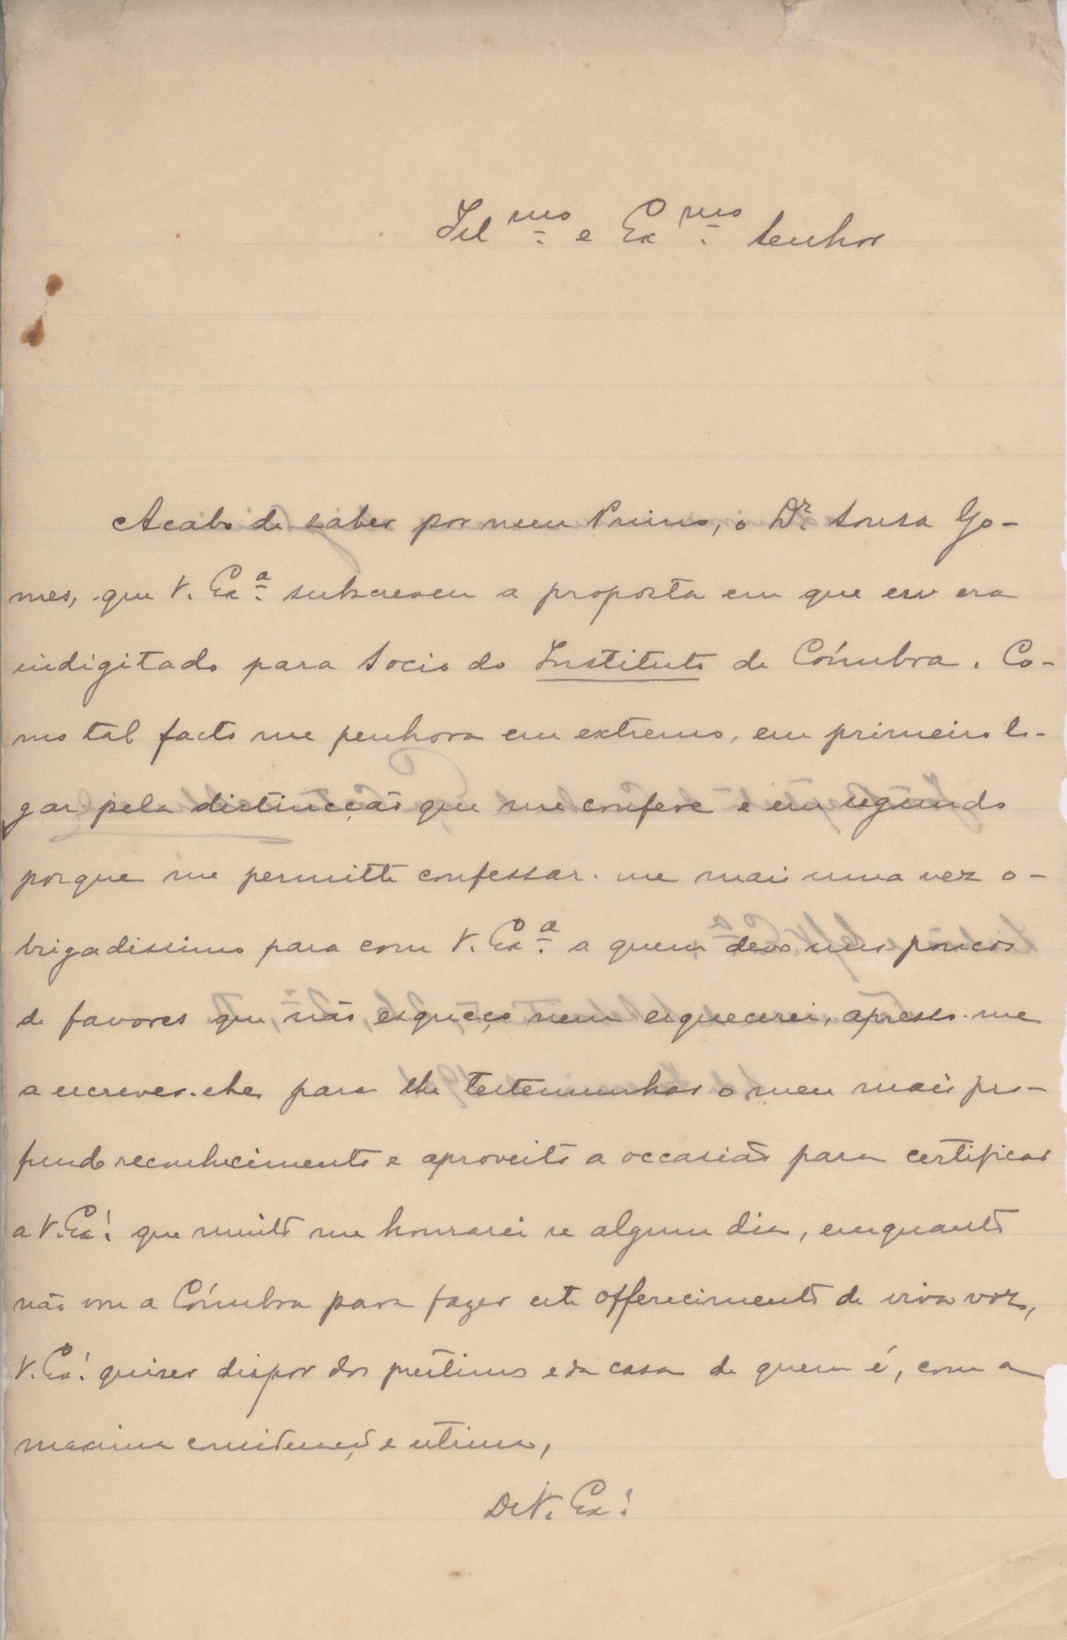 Ill.mo e Ex.mo Senhor
Acabo de saber por meu Primo, o Dr. Sousa Go-
mes, que V. Ex.a subscreveu a proposta em que eu era
indigitado para Socio do Instituto de Coimbra. Co-
mo tal facto me penhora em extremo, em primeiro lo-
gar pela distincção que me confere e em segundo
porque me permitte confessar-me mais uma vez o-
brigadissimo para com V. Ex.a a quem devo uns poucos
de favores que não esqueço nem esquecerei, apresso-me
a escrever-lhe para lhe testemunhar o meu mais pro-
fundo reconhecimento e aproveito a occasião para certificar
a V. Ex.a que muito me honrarei se algum dia, emquanto
não vou a Coimbra para fazer este offerecimento de viva voz,
V. Ex.a quizer dispor dos prestimos e da casa de quem é, com a
maxima consideração e estima,
De V. Ex.a